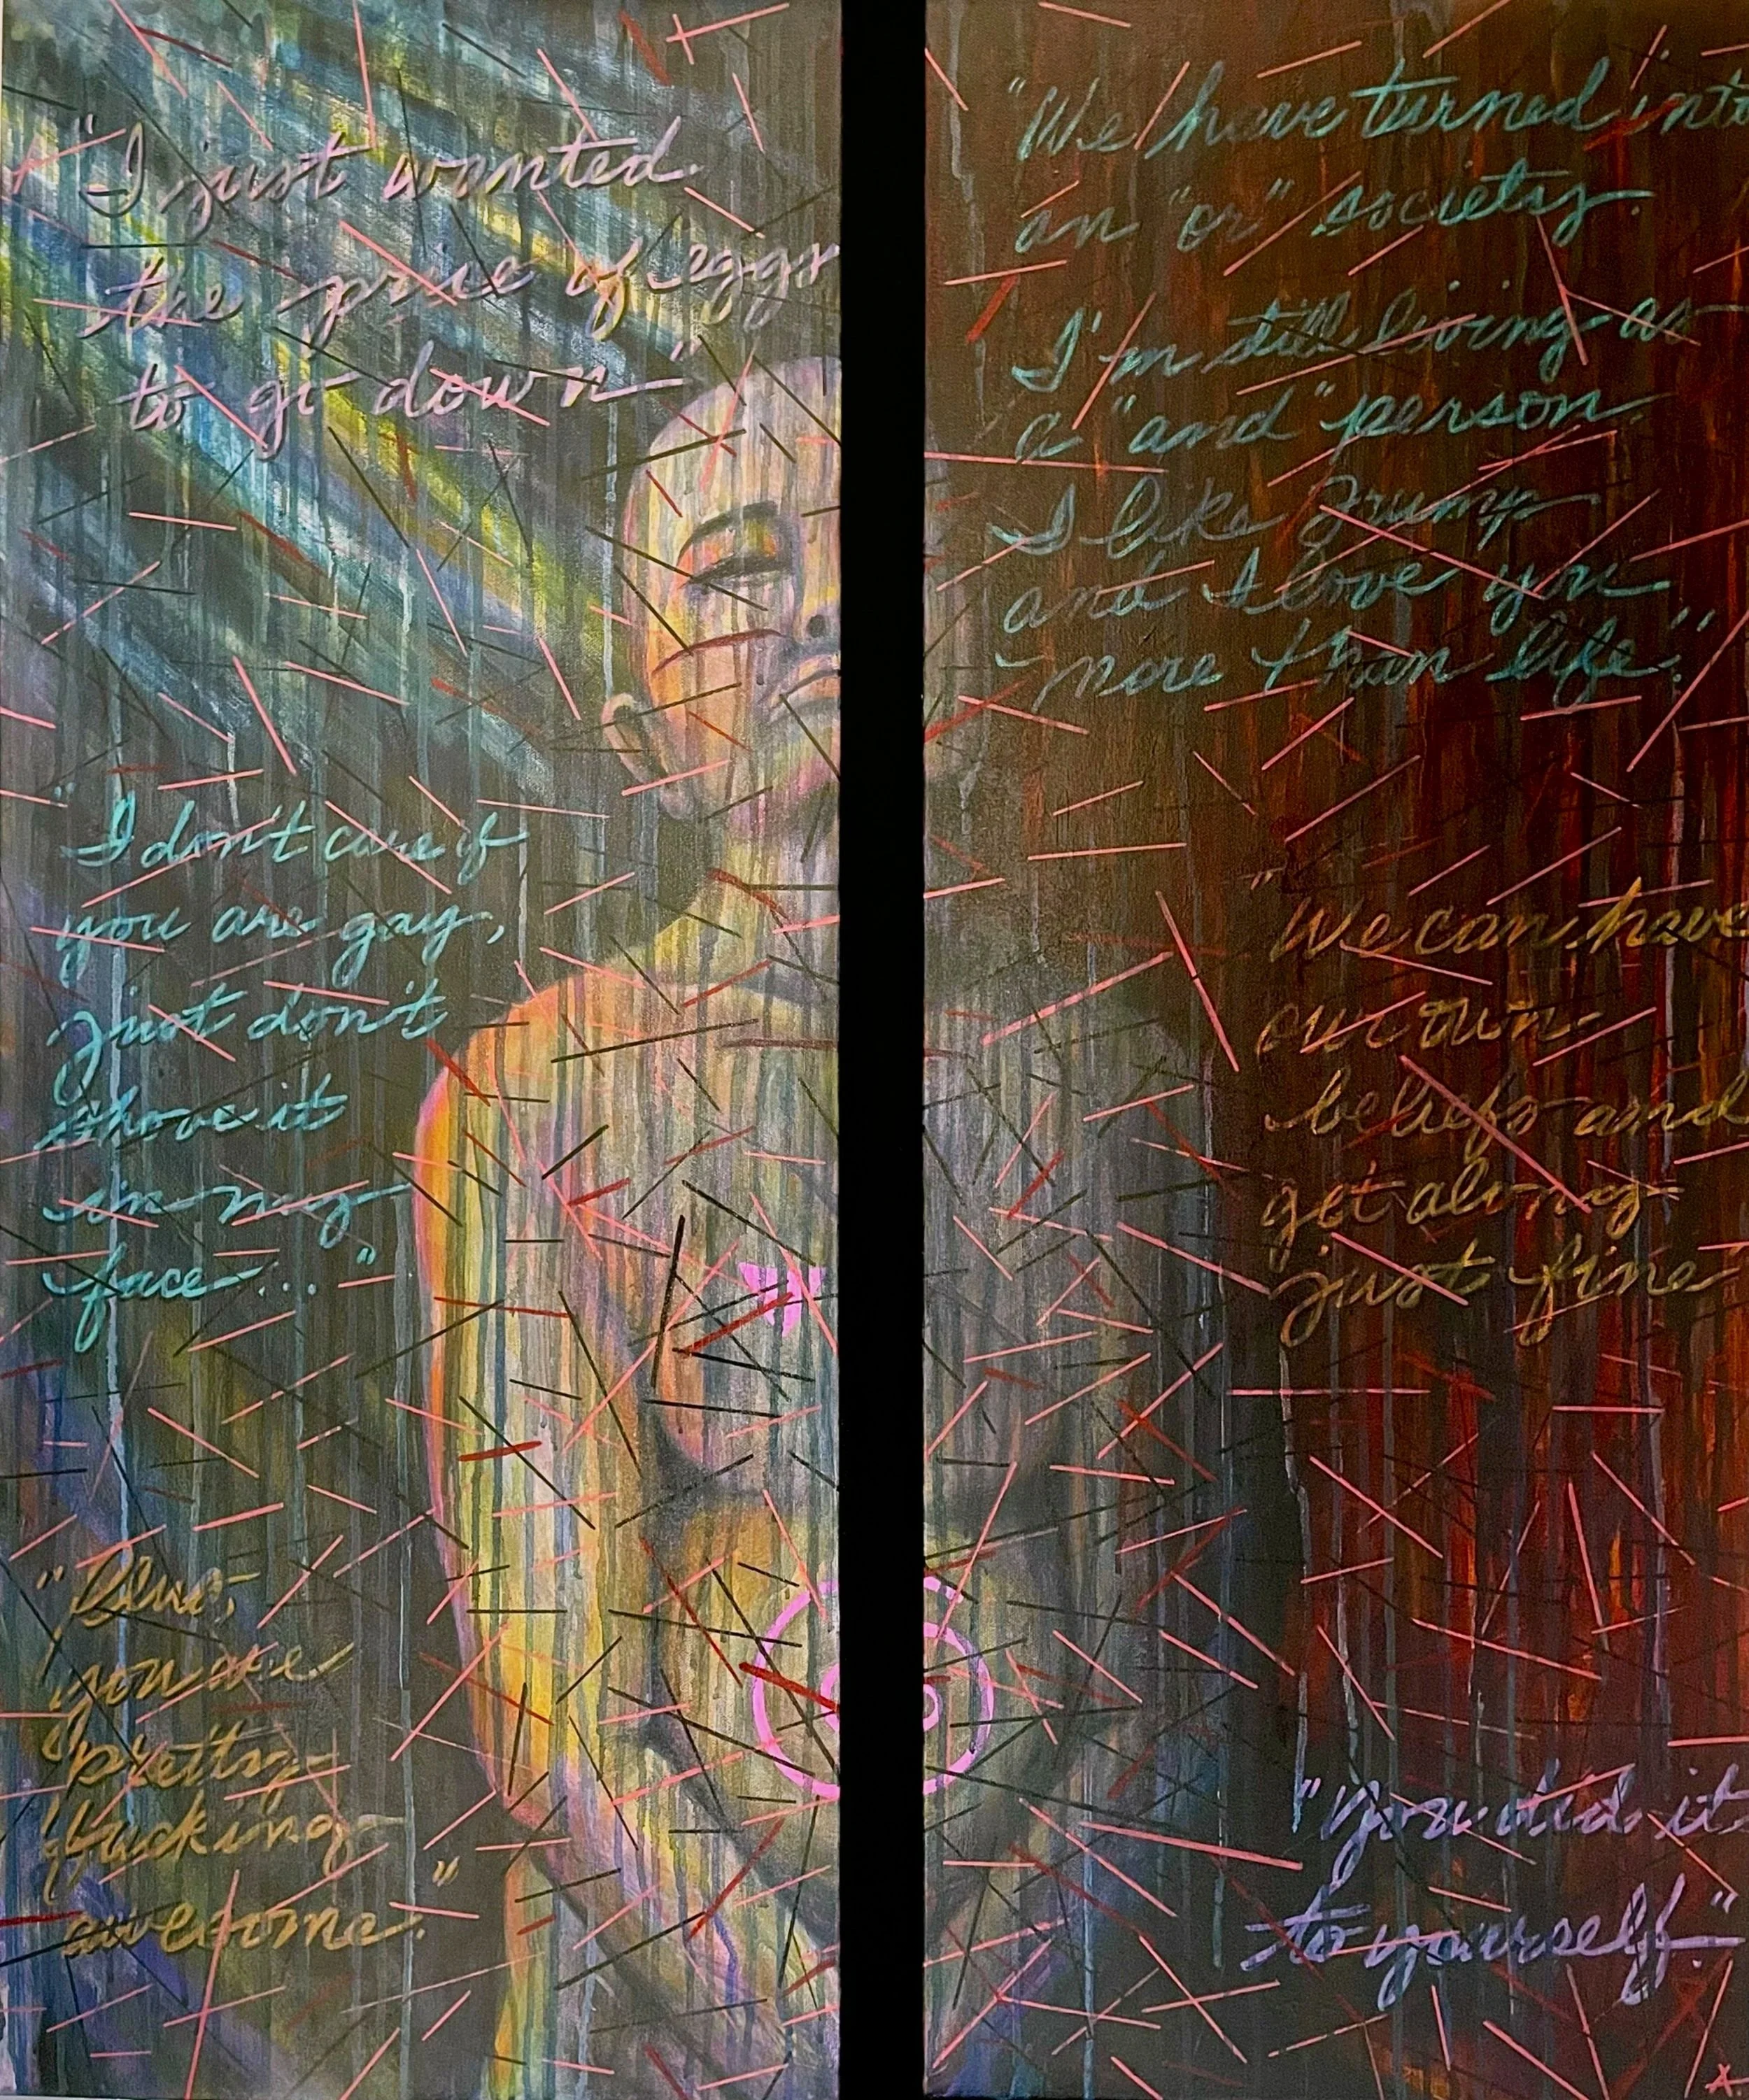 "I just wanted
the price of eggs
to go down"
"I don't care if
you are gay,
just don't
shove it
in my
face..."
you are
pretty
fucking
awesome."
"We have turned into
an "or" society.
I'm still living as
a "and" person.
I like Trump
and I love you
more than life."
"We can have
our own
beliefs and
get along
just fine"
"You did it
to yourself."